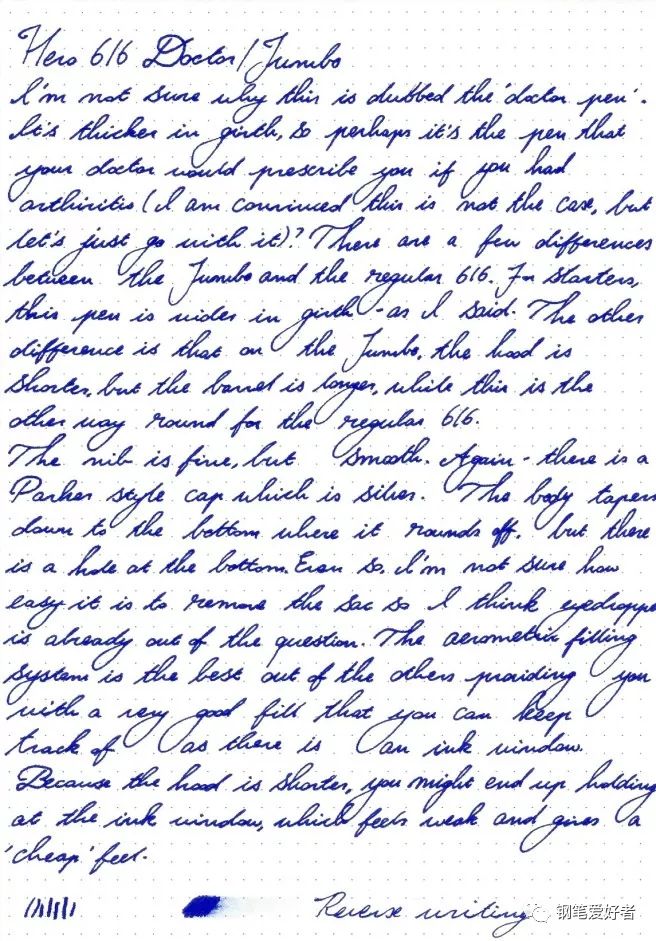 Hero 616 Doctor/Jumbo
I'm not sure why this is dubbed the 'doctor pen'.
It's thicker in girth, so perhaps it's the pen that
your doctor would prescribe you if you had
arthiritis (I am convinced this is not the case, but
let's just go with it)? There are a few differences
between the Jumbo and the regular 616. For starters,
this pen is wider in girth - as I said. The other
difference is that on the Jumbo, the hood is
shorter, but the barrel is longer, while this is the
other way round for the regular 616.
The nib is fine, but smooth. Again - there is a
Parker style cap which is silver. The body tapers
down to the bottom where it rounds off, but there
is a hole at the bottom. Even so, I'm not sure how
easy it is to remove the sac so I think eyedroppe
is already out of the question. The aerometric filling
system is the best out of the others providing you
with a very good fill that you can keep
track of as there is an ink window.
Because the hood is shorter, you might end up holding
at the ink window, which feels weak and gives a
'cheap' feel.
Reverse writing 钢笔爱好者